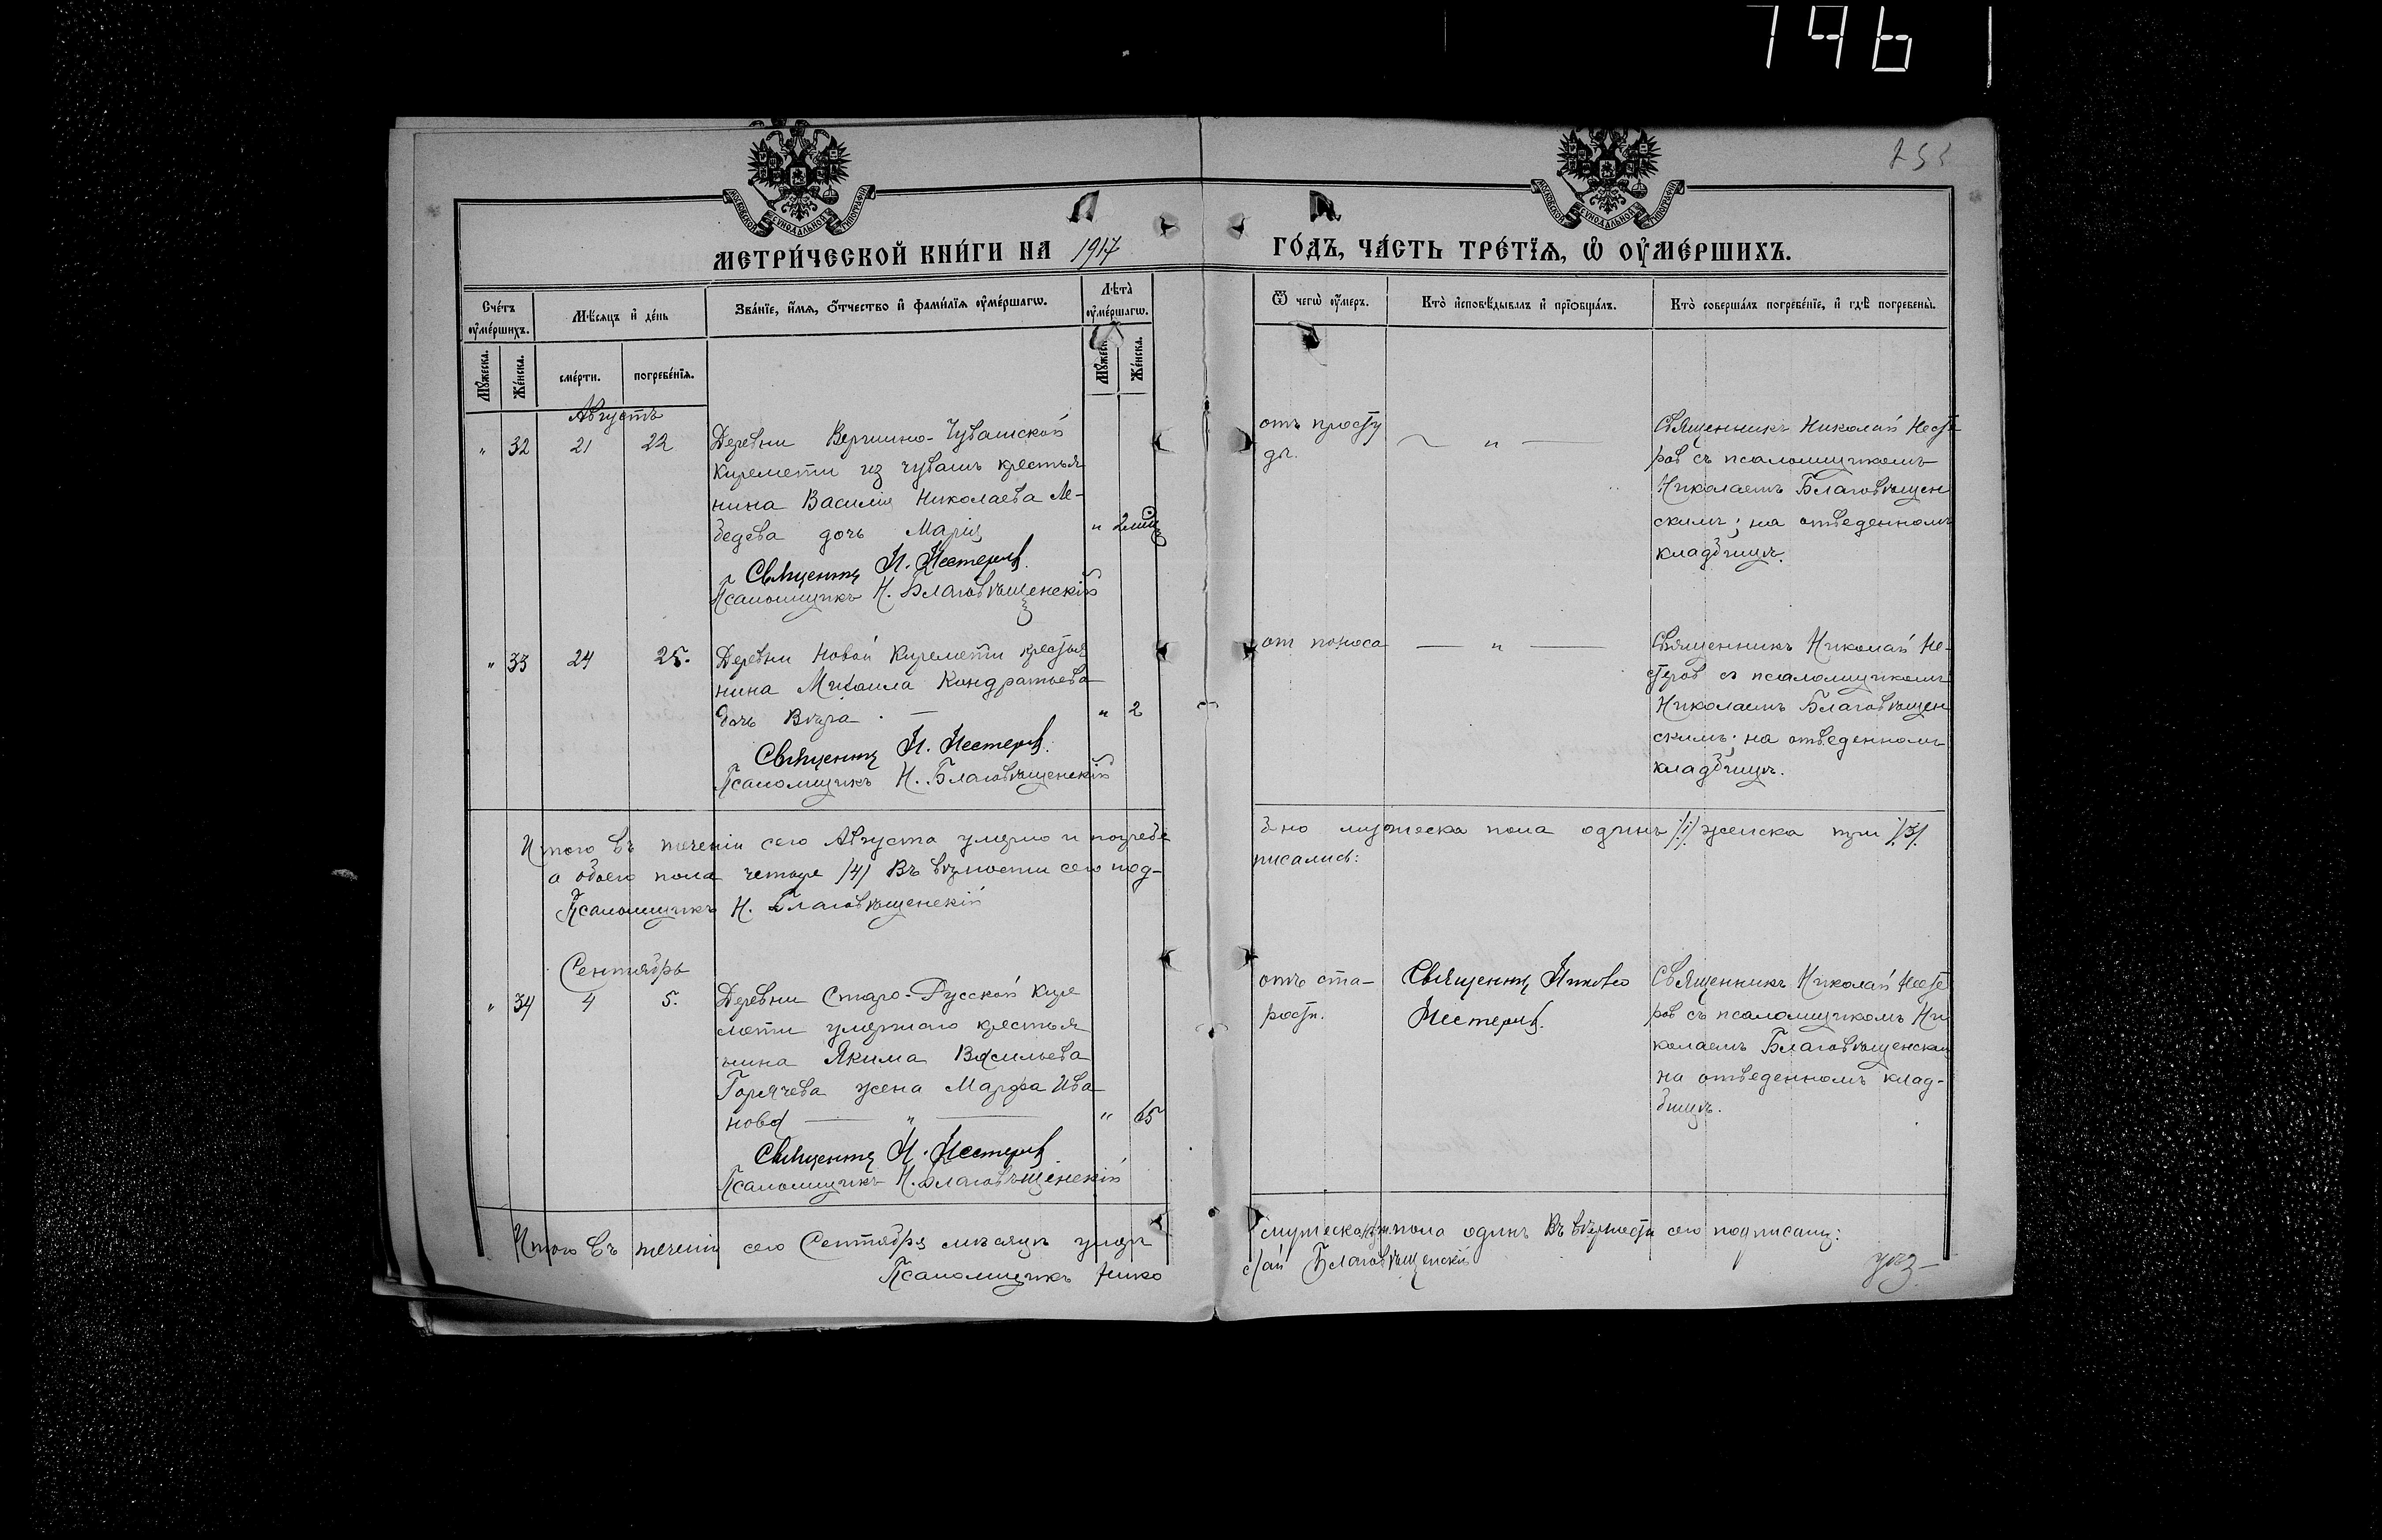 746
МОСКОВСКОЙ СУНОДАЛЬНОЙ ТИПОГРАФІИ
МОСКОВСКОЙ СУНОДАЛЬНОЙ ТИПОГРАФІИ
МЕТРИ́ЧЕСКОЙ КНИ́ГИ НА 1917 ГО́ДЪ, ЧА́СТЬ ТРЕ́ТЇѦ, Ѡ҆ ОУ҆МЕ́РШИХЪ.
Сче́тъ оу҆ме́ршихъ.
Мѣ́сяцъ и҆ де́нь
Зва́нїе, и҆́мѧ, ѻ҆́тчество и҆ фами́лїѧ оу҆ме́ршагѡ.
Лѣта̀ оу҆ме́ршагѡ.
Ѿ чегѡ̀ оу҆́меръ.
Кто̀ и҆сповѣ́дывалъ и҆ прїѡбща́лъ.
Кто̀ соверша́лъ погребе́нїе, и҆ гдѣ̀ погребены̀.
Мꙋ́жеска.
Же́нска.
сме́рти.
погребе́нїѧ.
Мꙋ́жеск
Же́нска.
Августъ
" 32 21 22
Деревни Вершино-Чувашской
Киремети из чувашъ крестья
нина Василія Николаева Ле-
бедева дочь Марія " 2 мѣс
Священникъ Н. Нестеровъ.
Псаломщикъ Н. Благовѣщенскій
отъ просту
ды.
"
Священникъ Николай Несте
ров съ псаломщикомъ
Николаемъ Благовѣщен
скимъ; на отведенномъ
кладбищѣ.
" 33 24 25.
Деревни Новой Киремети крестья
нина Михаила Кондратьева
дочь Вѣра. — " 2
Священникъ Н. Нестеровъ.
Псаломщикъ Н. Благовѣщенскій
от поноса
— " —
Священникъ Николай Не-
стеров съ псаломщикомъ
Николаемъ Благовѣщен
скимъ; на отведенномъ
кладбищѣ.
Итого въ теченіи сего Августа умерло и погребе
но мужеска пола одинъ /1/ женска три /3/
а обоего пола четыре /4/ Въ вѣрности сего под-
писались:
Псаломщикъ Н. Благовѣщенскій
Сентябрь
" 34 4 5.
Деревни Старо-Русской Кире
мети умершаго крестья
нина Якима Васильева
Горячева жена Марфа Ива
нова — " — " 65
Священникъ Н. Нестеровъ
Псаломщикъ Н. Благовѣщенскій
отъ ста-
рости.
Священникъ Николай
Нестеровъ.
Священникъ Николай Несте
ров съ псаломщикомъ Ни
колаемъ Благовѣщенским
на отведенномъ клад-
бищѣ.
Итого въ теченіи сего Сентября мѣсяца умер
пола одинъ Въ вѣрности сего подписали:
Псаломщикъ Нико
лай Благовѣщенскій